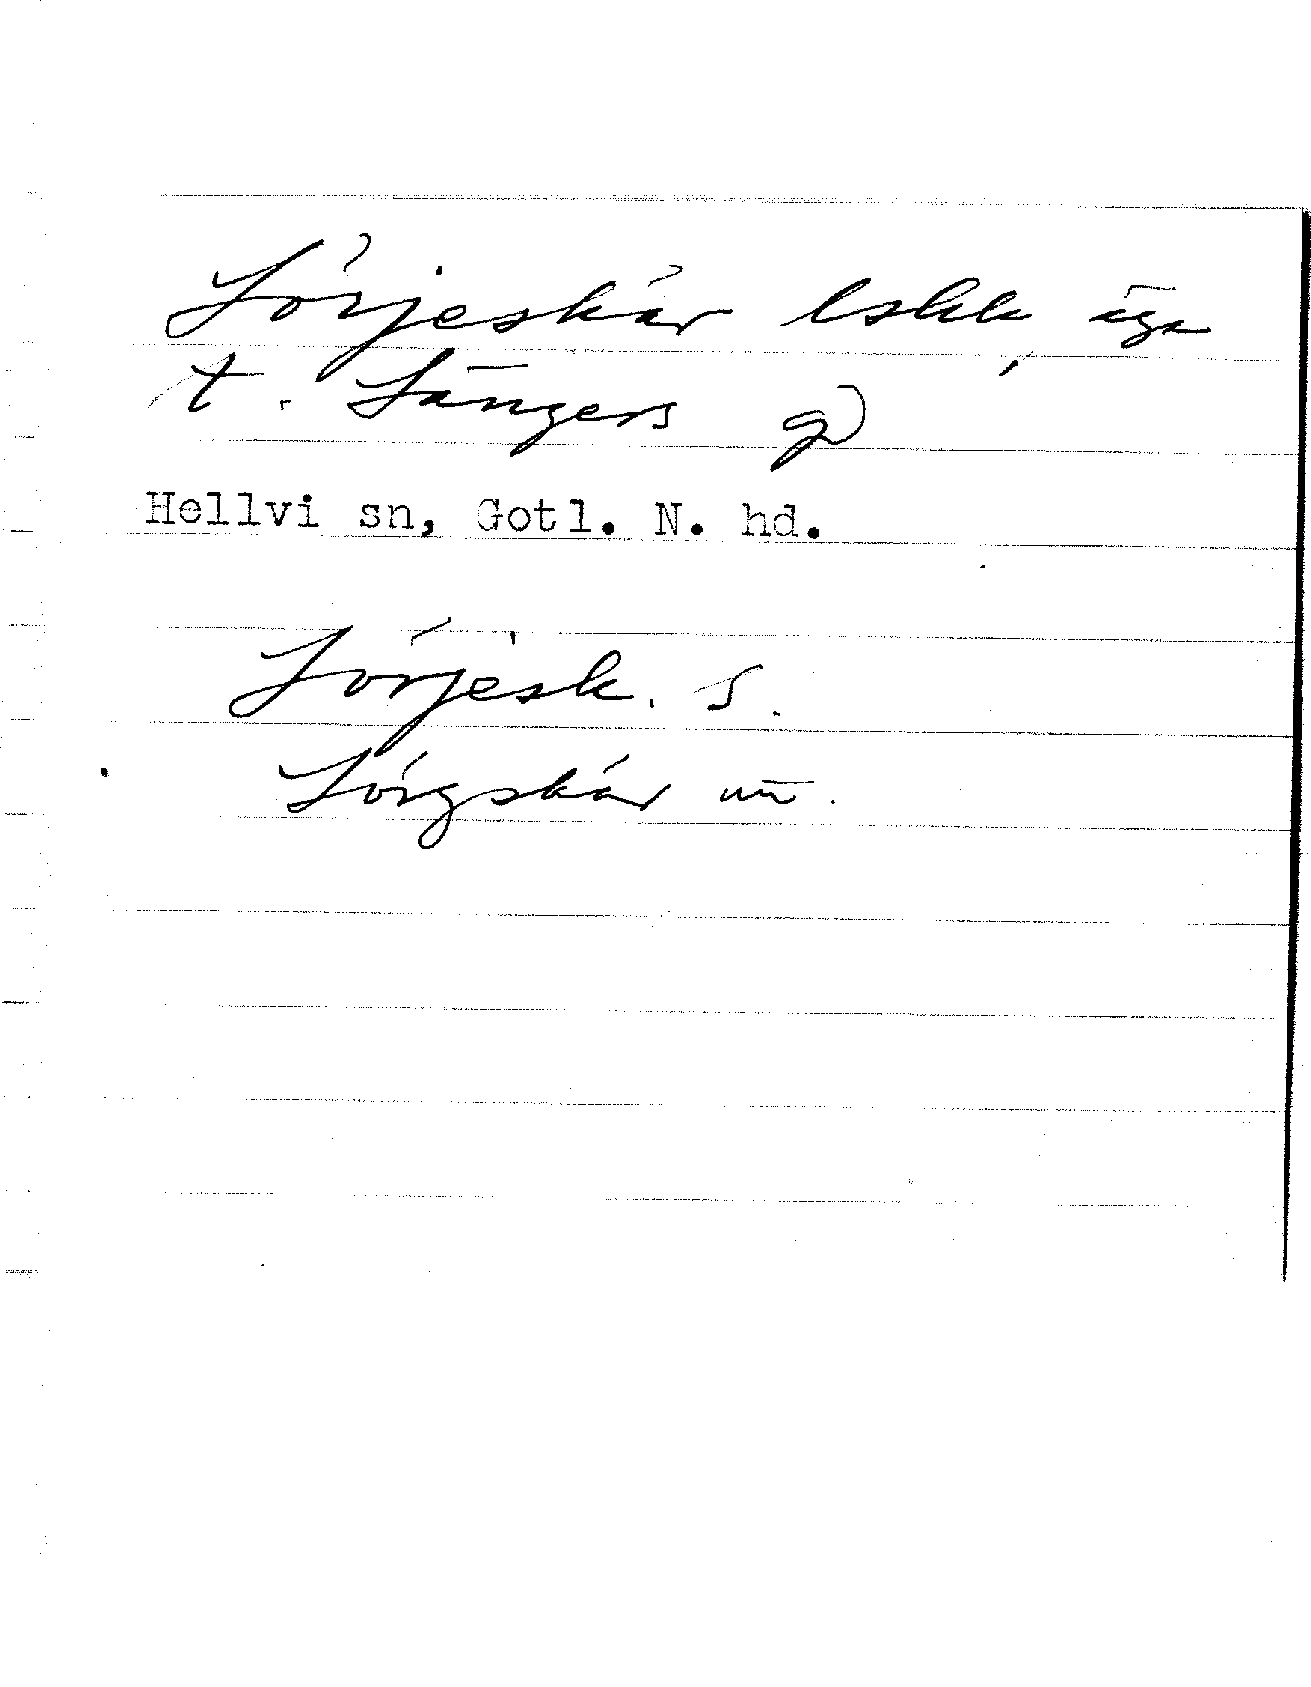 Sörjeskär lskk, äga
t. Sängers g)
Hellvi sn, Gotl. N. hd.
Sörjesk. S.
Sörgskär